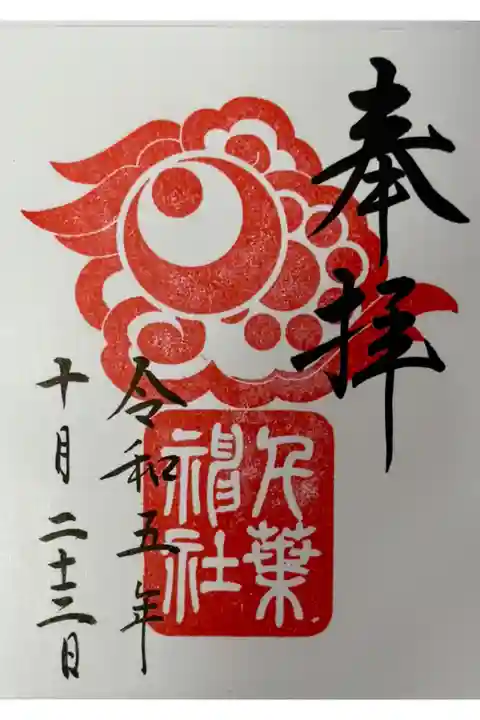 奉拝
千葉
神社
令和五年
十月二十三日